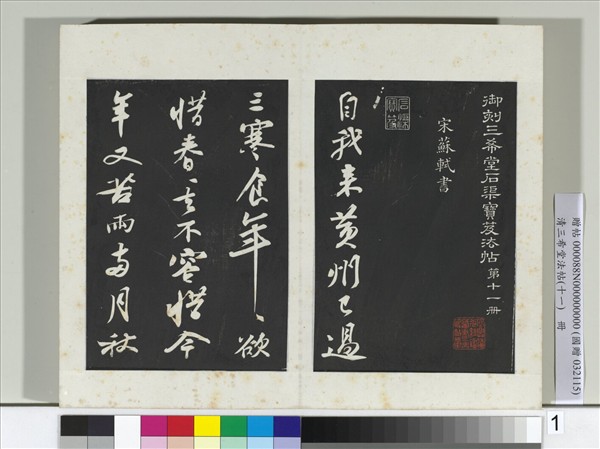 御刻三希堂石渠寶笈法帖第十一冊
宋蘇軾書
自我来黄州已過
三寒食年〻欲
惜春〻去不容惜今
年又苦雨兩月秋
贈帖 000088N000000000 (國贈 032415)
清三希堂法帖(十一) 冊
1